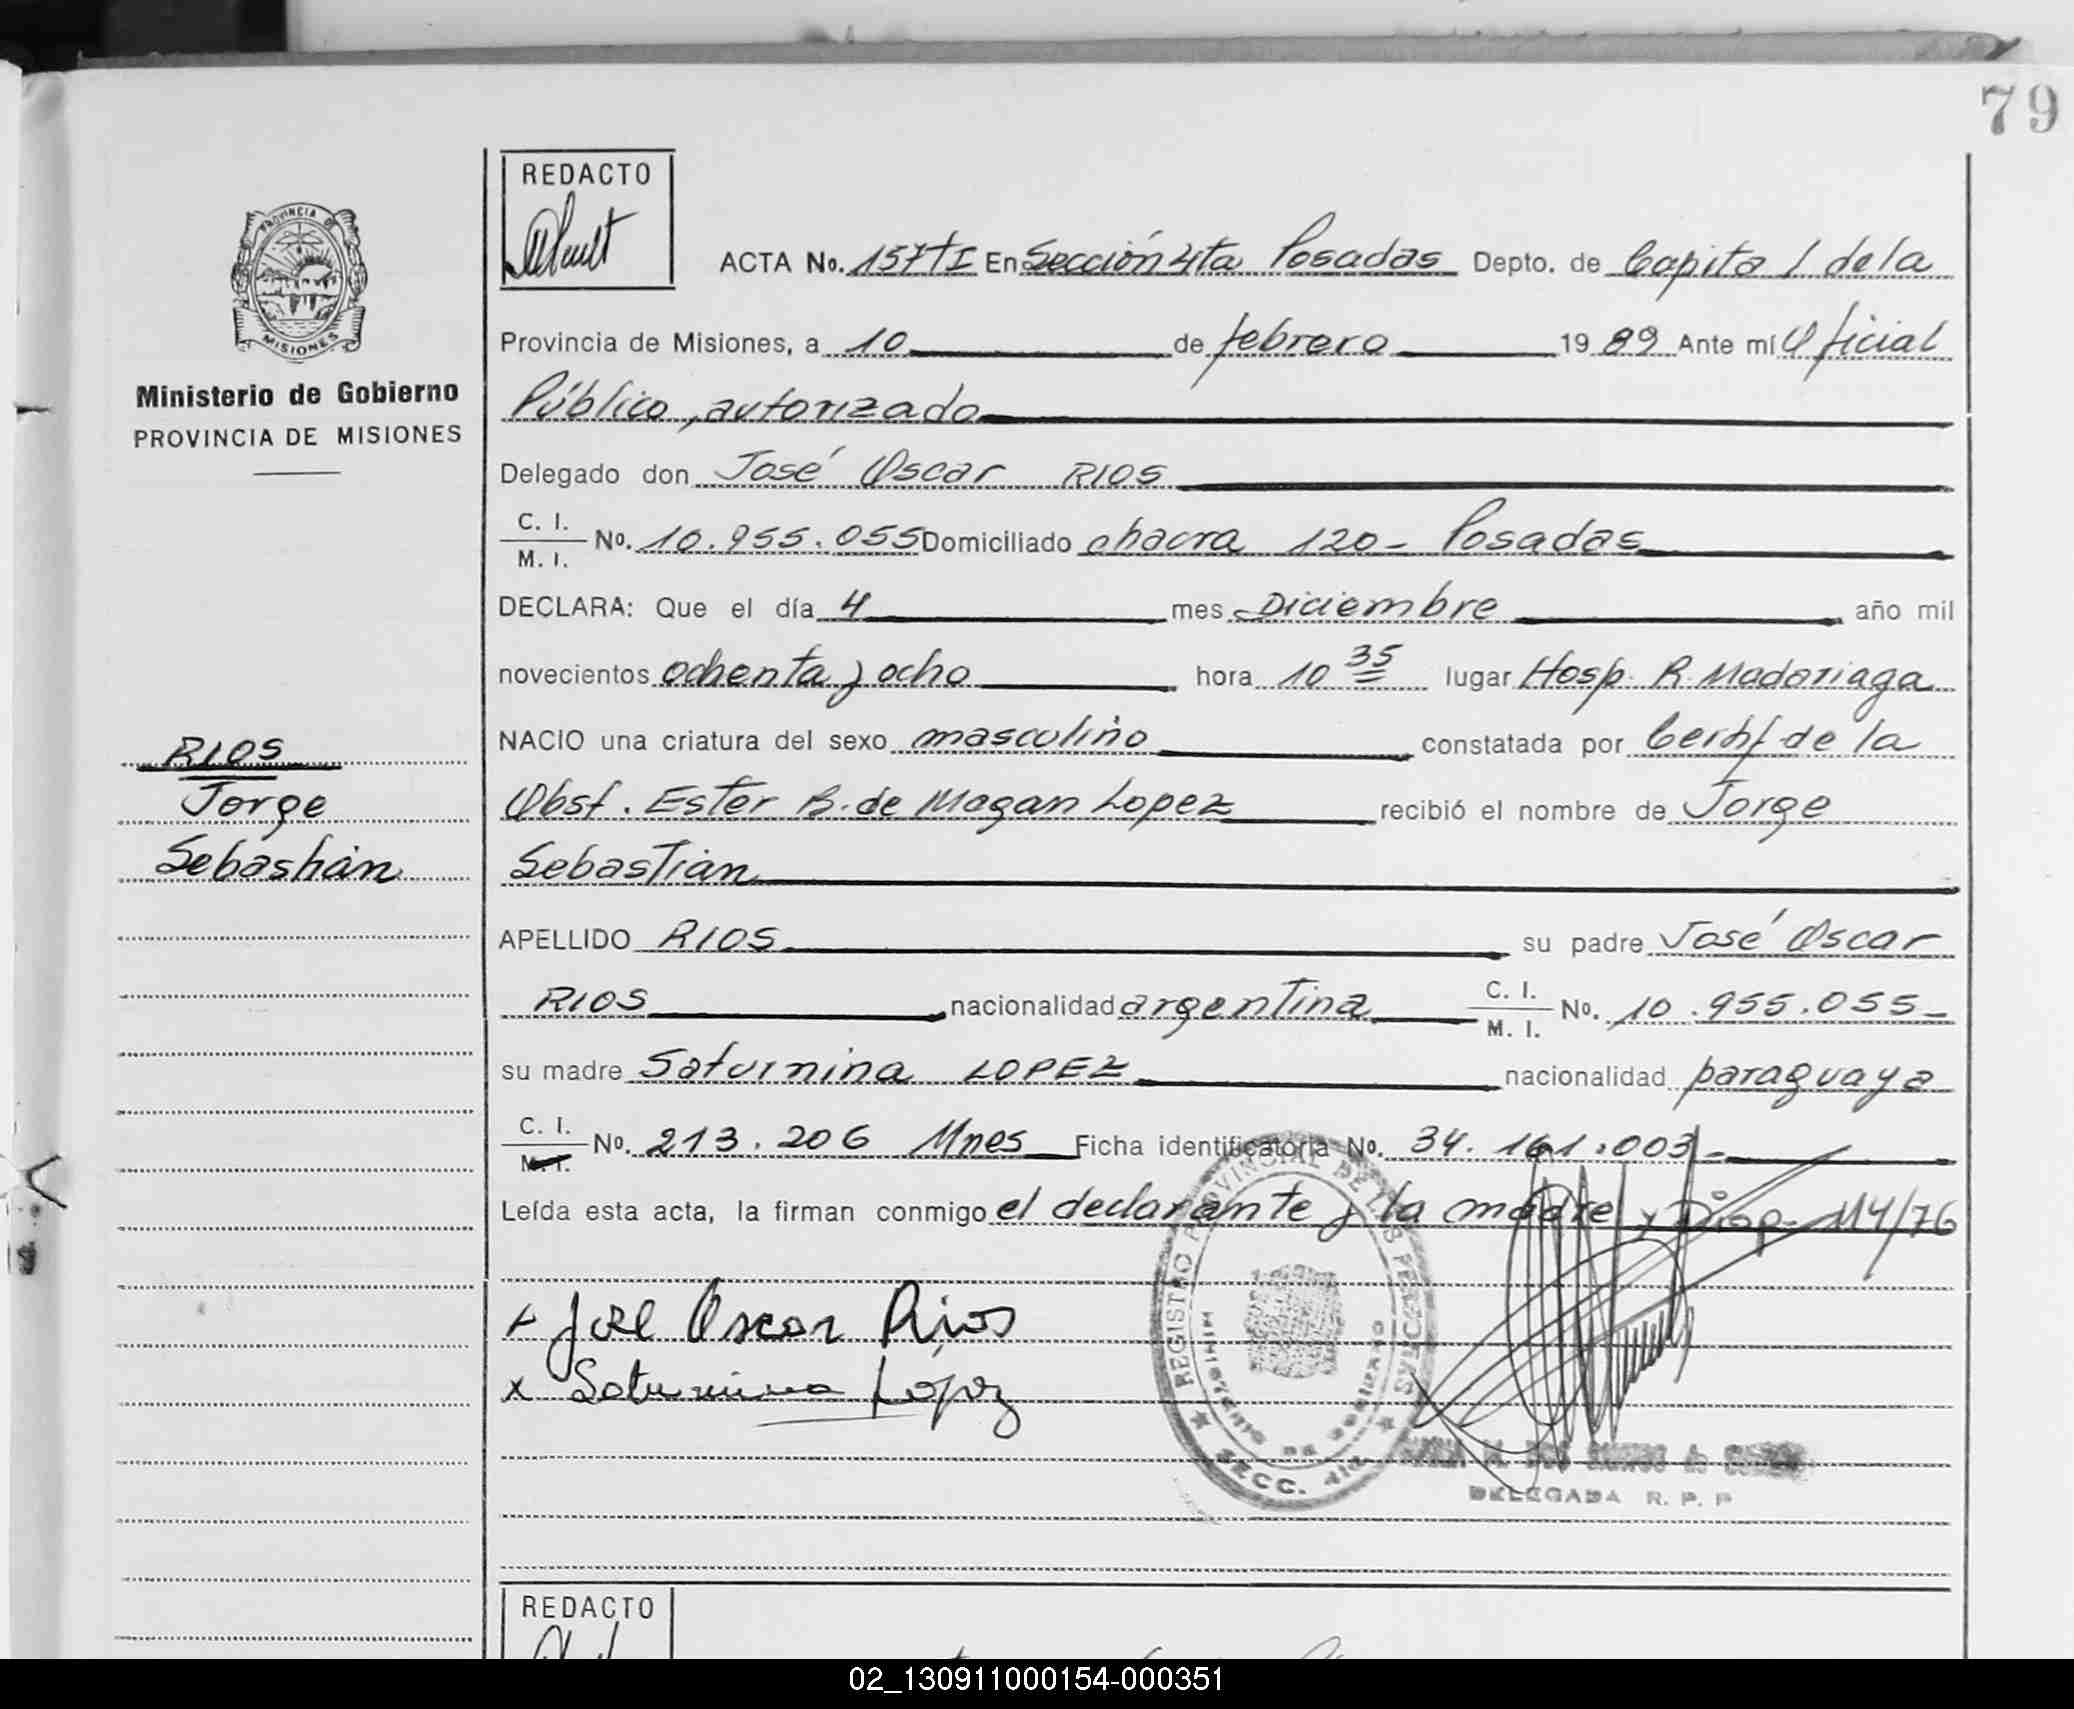 79
REDACTO
PROVINCIA DE
MISIONES
Ministerio de Gobierno
PROVINCIA DE MISIONES
ACTA No. 157 t I En Sección 4ta Posadas Depto. de Capital de la
Provincia de Misiones, a 10 de febrero 1989 Ante mí Oficial
Público, autorizado
Delegado don José Oscar RIOS
C. I.
M. I. No. 10.955.055 Domiciliado chacra 120- Posadas
DECLARA: Que el día 4 mes Diciembre año mil
novecientos ochenta y ocho hora 10 35 lugar Hosp. R. Madariaga
NACIO una criatura del sexo masculino constatada por Certif de la
Obst. Ester B. de Magan Lopez recibió el nombre de Jorge
Sebastián
RIOS
Jorge
Sebastián
APELLIDO RIOS su padre José Oscar
RIOS nacionalidad argentina C. I.
M. I. No. 10.955.055-
su madre Saturnina LOPEZ nacionalidad paraguaya
C. I.
M. I. No. 213.206 Mnes Ficha identificatoria No. 34.161.003-
Leída esta acta, la firman conmigo el declarante y la madre y Disp. 114/76
+ José Oscar Rios
x Saturnina López
REGISTRO PROVINCIAL DE LAS PERSONAS
MINISTERIO DE GOBIERNO
SECC. 4ta
DELEGADA R. P. P
REDACTO
02_130911000154-000351